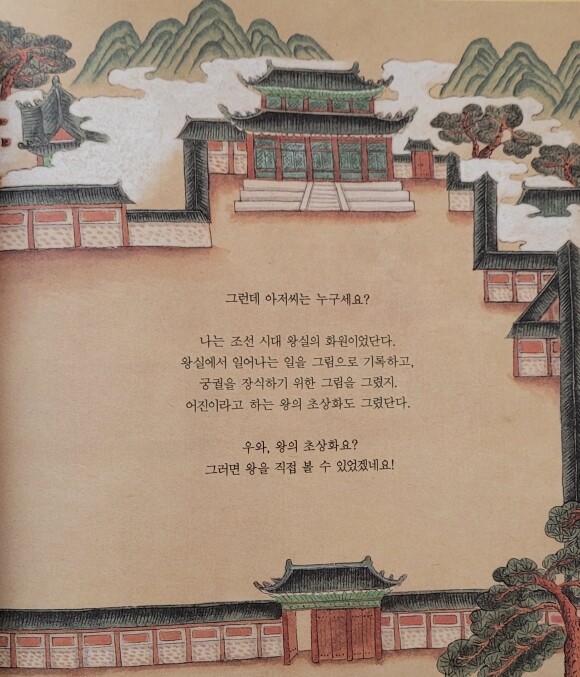 그런데 아저씨는 누구세요?
나는 조선 시대 왕실의 화원이었단다.
왕실에서 일어나는 일을 그림으로 기록하고,
궁궐을 장식하기 위한 그림을 그렸지.
어진이라고 하는 왕의 초상화도 그렸단다.
우와, 왕의 초상화요?
그러면 왕을 직접 볼 수 있었겠네요!